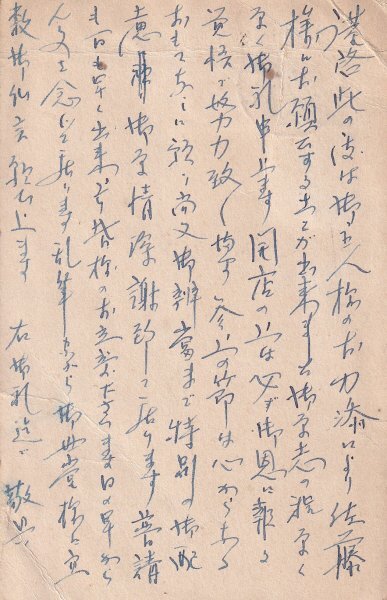 謹啓此の度は御主人様のお力添により佐藤
様にお願する事が出来まして御厚志の程厚く
厚く御礼申上ます 開店の上は必ず御恩に報る
覚悟で努力致します 参上の節は心からなる
おもてなしに預り尚又御弁当まで特別の御配
慮を賜り御厚情深謝致して居ります 普請
も一日も早く出来 皆様のお立寄下さいます日の早から
ん事を念じて居ります 乱筆ながら御母堂様に宜
敷御伝言願い上ます 右御礼迄で 敬具